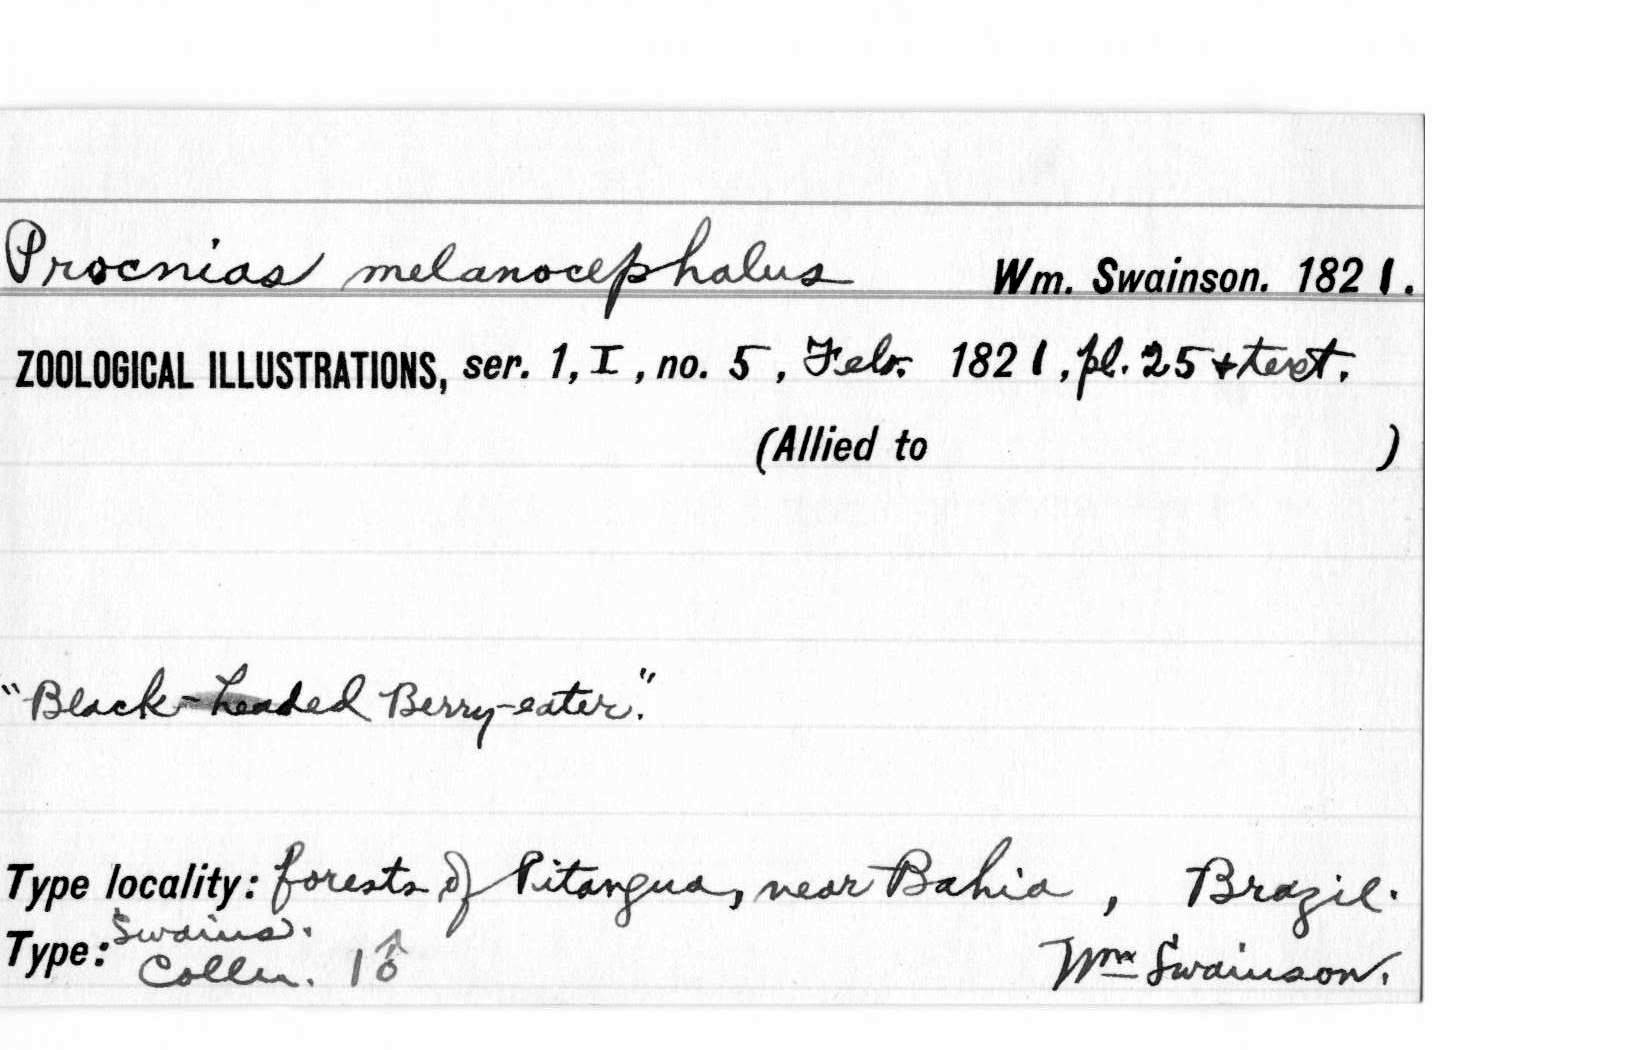 Procnias melanocephalus Wm. Swainson. 1821.
ZOOLOGICAL ILLUSTRATIONS, ser. 1, I, no. 5, Feb. 1821, pl. 25 + text.
(Allied to )
"Black-headed Berry-eater."
Type locality: forests of Pitangua, near Bahia, Brazil.
Type: Swains. Colln. 1♂ Wm Swainson.